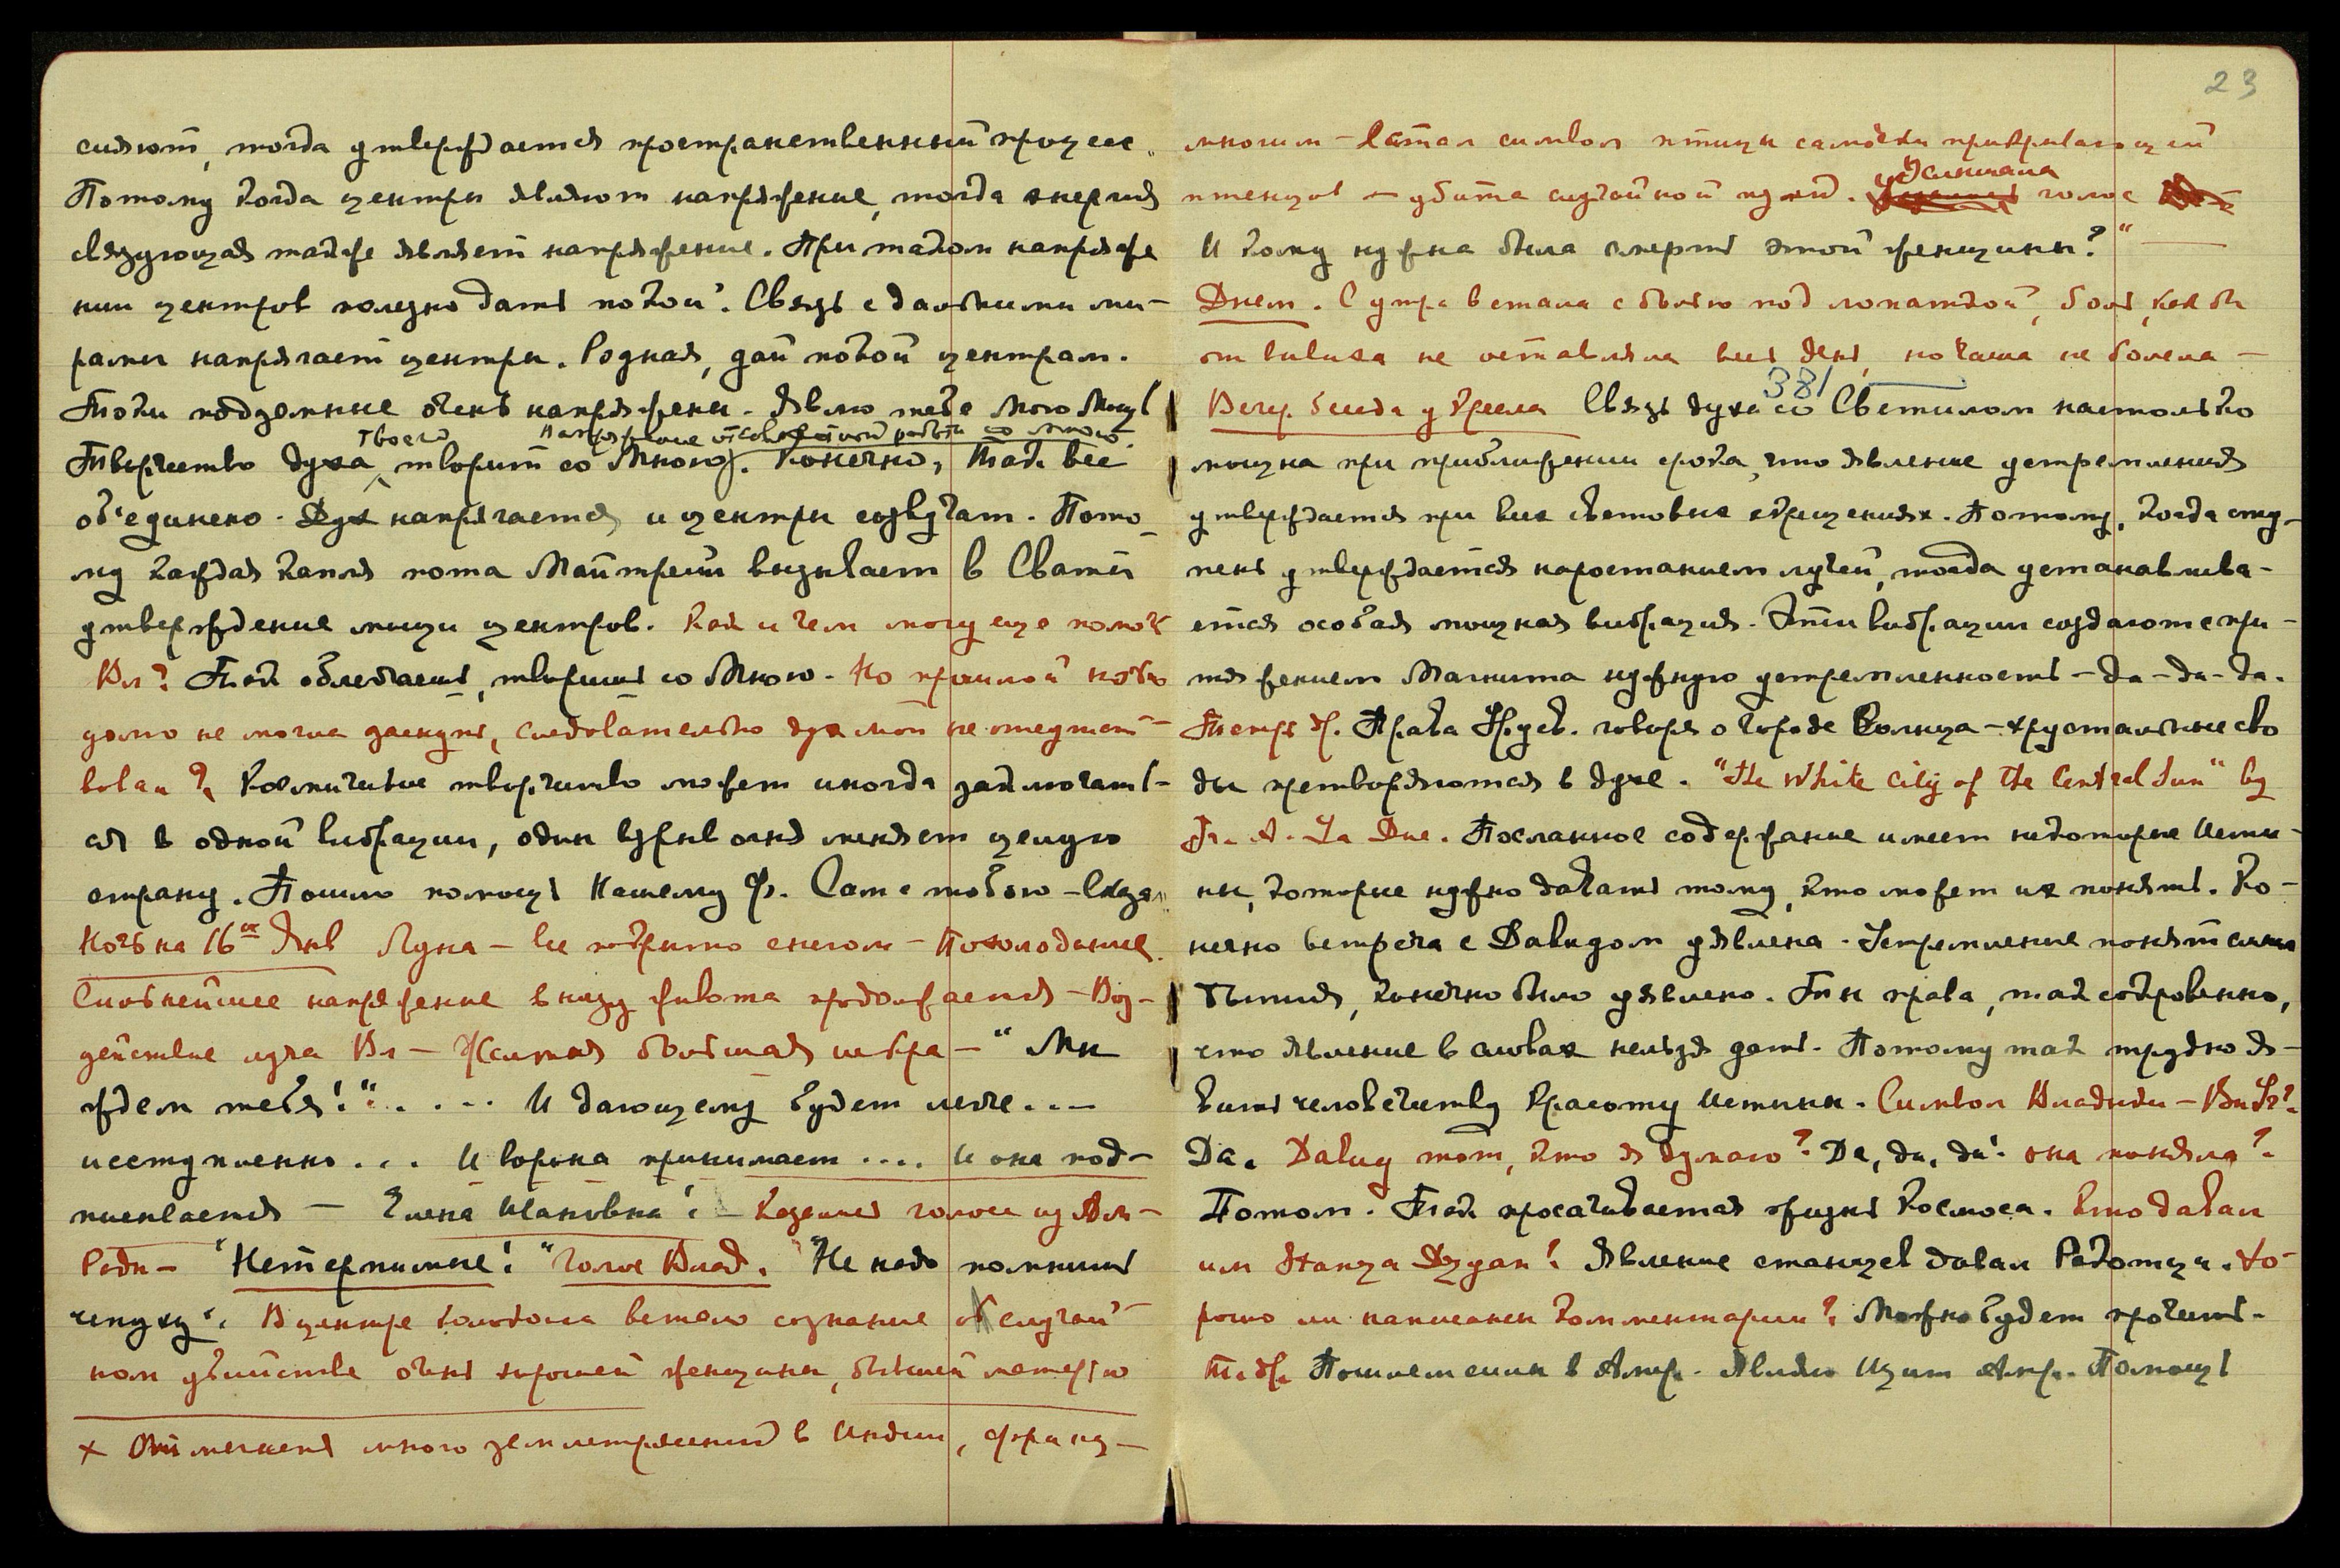 сияют, тогда утверждается пространственный процесс.
Потому когда центры являют напряжение, тогда энергия
связующая также являет напряжение. При таком напряже
нии центров полезно дать покой. Связь с дальними ми-
рами напрягает центры. Родная, дай покой центрам.
Токи подземные очень напряжены. Являю тебе Мою Мощь
Твоего напряжение от совместной работы со мною.
Творчество духа творит со Мною. Конечно, Так все
об'единено. Дух напрягается и центры созвучат. Пото-
му каждая капля пота Майтрейи вызывает в Свати
утверждение мощи центров. Как и чем могу еще помочь
Вл? Так облегчаешь, творишь со Мною. Но прошлой ночью
долго не могла заснуть, следовательно дух мой не отсутст-
вовал? Космическое творчество может иногда заключать-
ся в одной вибрации, один взрыв огня меняет целую
страну. Пошлю помощь Нашему Ф. Сам с тобою
Ночь на 16ое Янв Луна – все покрыто снегом – Похолодание.
Сильнейшее напряжение внизу живота продолжается – Воз-
действие луча Вл – Желтая большая искра – "Мы
ждем тебя!" . . . . И дающему будет легче . . .
исступленно . . . И ворона принимает . . . . и она под-
писывается – Елена Ивановна! – голос из
"Нетерпимые!" Голос Влад. "Не надо помнить
чепуху". В центре колокола встало сознание о случай-
ном убийстве очень хорошей женщины, бывшей матерью
× Отмечены много землетрясений в Индии, франц-
23
многим – Встал символ птицы самочки прикрывающей
Услышала
птенцов – убита случайной пулей. голос
И кому нужна была смерть этой женщины?" –
Днем. С утра встала с болью под лопаткой, боль, как бы
от вывиха не оставляла весь день, но чаша не болела –
381
Вечер. беседа у кресла Связь духа со Светилом настолько
мощна при приближении срока, что явление устремления
утверждается при всех световых скрещениях. Потому, когда сту-
пень утверждается наростанием лучей, тогда устанавлива-
ется особая мощная вибрация. Эти вибрации создают с при-
тяжением Магнита нужную устремленность – да – да – да.
Права говоря о городе Солнца – хрустальные сво
ды претворяются в духе. "The White City of the Central Sun" by
Посланное содержание имеет некоторые Исти-
ны, которые нужно давать тому, кто может их понять. Ко-
нечно встреча с Давидом уявлена. Устремление понять
Бытия, конечно было уявлено. Ты права, так сокровенно,
что явление в словах нельзя дать. Потому так трудно я-
вить человечеству Красоту Истины. Символ Владыки –
Да. Давид тот, кто я думаю? Да, да, да! она поняла?
Потом. Так просачивается жизнь Космоса. Кто давал
им Станца Дзиан? Явление станцев давал Ракотци. Хо-
рошо ли написаны комментарии? Можно будет прочесть.
Пошлем силы в Амер. Являю Щит Амер. Помощь